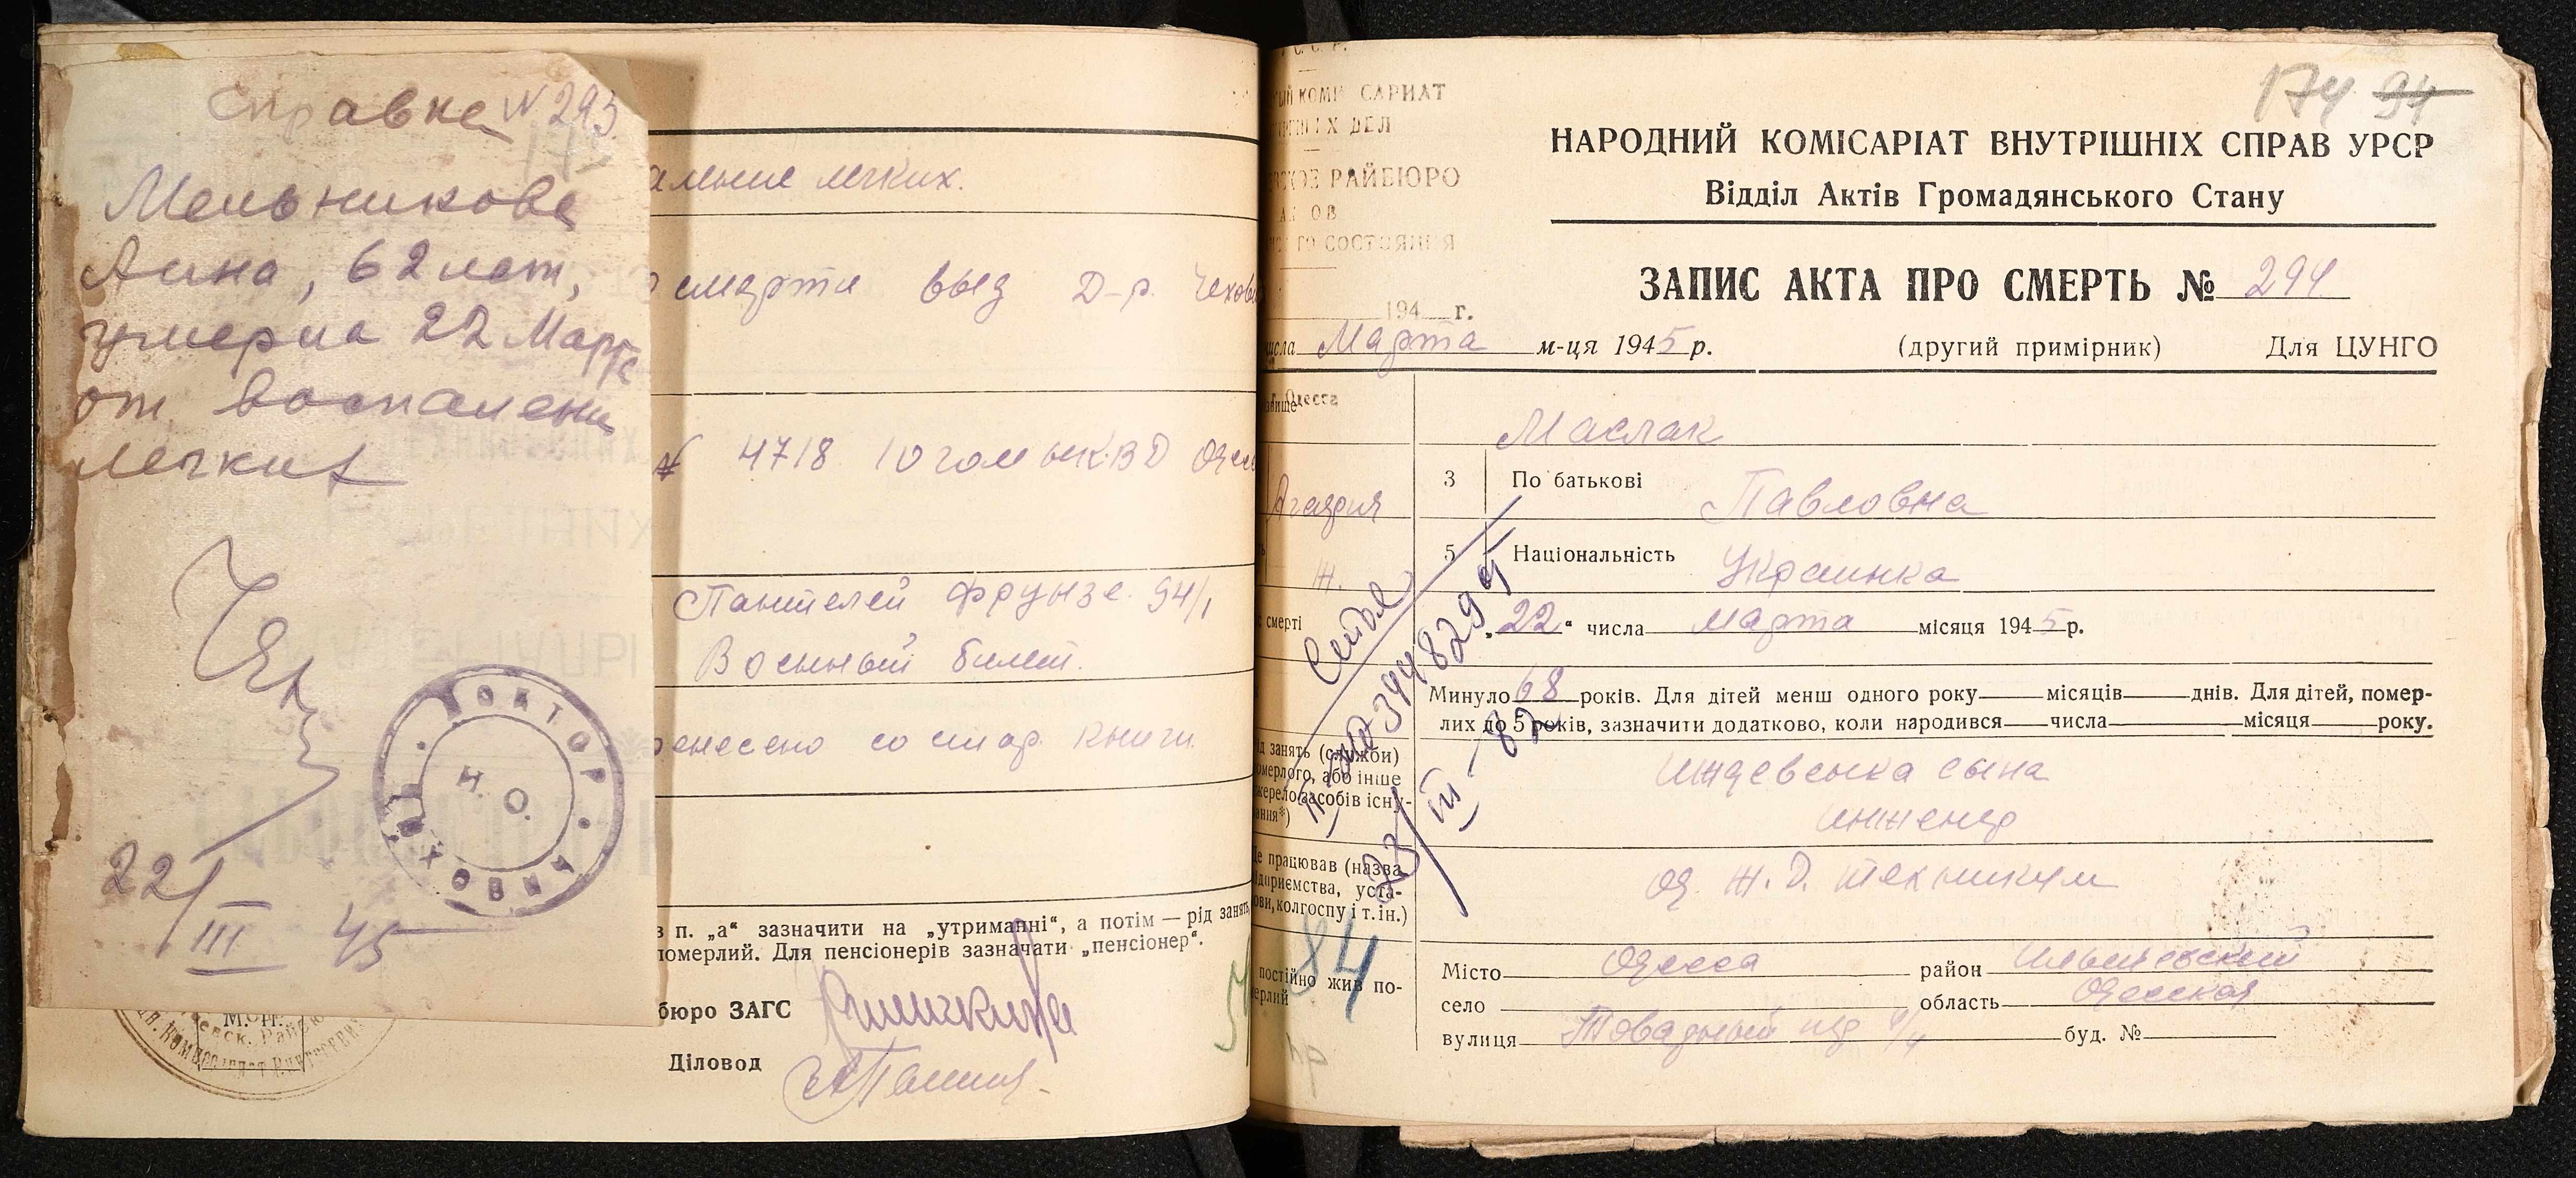 Справка N 293
Мельникова
Анна, 62 лет,
умерла 22 Марта
от воспалени
легких
22/III 45
ДОКТОР
Н. О.
М. П.
аление легких.
смерти выд Д-р. Чехов
№ 4718 10 гом НКВД Одес
Пантелей Фрунзе 94/1
Военный билет.
ренесено со стар. книги.
з п. „а“ зазначити на „утриманні“, а потім — рід занять,
померлий. Для пенсіонерів зазначати „пенсіонер“.
бюро ЗАГС
Діловод
С. С. Р.
ЫЙ КОМИ САРИАТ
ННИХ ДЕЛ
ВСКОЕ РАЙБЮРО
АКТОВ
ГО СОСТОЯНИЯ
194 г.
174 94
НАРОДНИЙ КОМІСАРІАТ ВНУТРІШНІХ СПРАВ УРСР
Відділ Актів Громадянського Стану
ЗАПИС АКТА ПРО СМЕРТЬ № 294
числа Марта м-ця 1945 р. (другий примірник) Для ЦУНГО
звище Одесса
Маслак
3 По батькові Павловна
Агафия
5 Національність Украинка
Ж.
смерті „22“ числа Марта місяця 1945 р.
Минуло 68 років. Для дітей менш одного року місяців днів. Для дітей, помер-
лих до 5 років, зазначити додатково, коли народився числа місяця року.
ід занять (служби)
омерлого, або інше
жерело засобів існу-
ання*)
Иждевенка сына
инженер
е працював (назва
ідприємства, уста-
ови, колгоспу і т. ін.)
Од. Ж. Д. техникум
23/III-82
84
постійно жив по-
ерлий
Місто Одесса район Ильичевский
село область Одесская
вулиця буд. №